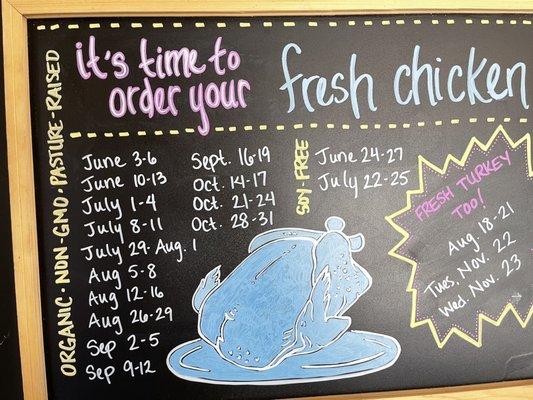 it's time to
order your
fresh chicken
ORGANIC · NON-GMO · PASTURE-RAISED
June 3-6
June 10-13
July 1-4
July 8-11
July 29-Aug. 1
Aug 5-8
Aug 12-16
Aug 26-29
Sep 2-5
Sep 9-12
Sept. 16-19
Oct. 14-17
Oct. 21-24
Oct. 28-31
SOY-FREE
June 24-27
July 22-25
FRESH TURKEY
TOO!
Aug 18-21
Tues, Nov. 22
Wed. Nov. 23